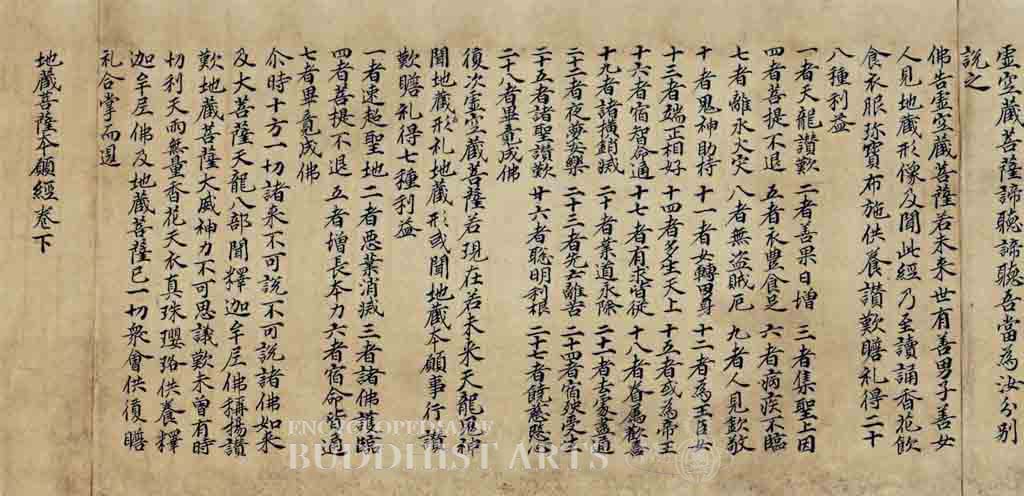 虛空藏菩薩諦聽諦聽吾當為汝分別
說之
佛告虛空藏菩薩若未来世有善男子善女
人見地藏形像及聞此經乃至讀誦香花飲
食衣服珎寶布施供養讚歎瞻礼得二十
八種利益
一者天龍讚歎 二者善果日增 三者集聖上因
四者菩提不退 五者衣豐食足 六者病疾不臨
七者離水火灾 八者無盜賊厄 九者人見歎敬
十者鬼神助持 十一者女轉男身 十二者為王臣女
十三者端正相好 十四者多生天上 十五者或為帝王
十六者宿智命通 十七者有求皆從 十八者眷属歡喜
十九者諸橫銷滅 二十者業道永除 二十一者去處盡通
二十二者夜夢安樂 二十三者先亡離苦 二十四者宿殃受生
二十五者諸聖讚歎 廿六者聡明利根 二十七者饒慈愍
二十八者畢竟成佛
復次虛空藏菩薩若現在若未来天龍鬼神
聞地藏形礼地藏形或聞地藏本願事行讚
歎瞻礼得七種利益
一者速超聖地 二者惡業消滅 三者諸佛護臨
四者菩提不退 五者增長本力 六者宿命皆通
七者畢竟成佛
尒時十方一切諸来不可說不可說諸佛如来
及大菩薩天龍八部聞釋迦牟尼佛稱揚讚
歎地藏菩薩大威神力不可思議歎未曾有時
忉利天雨無量香花天衣真珠瓔珞供養釋
迦牟尼佛及地藏菩薩已一切衆會俱復瞻
礼合掌而退
地藏菩薩本願經卷下
ENCYCLOPEDIA OF
BUDDHIST ARTS